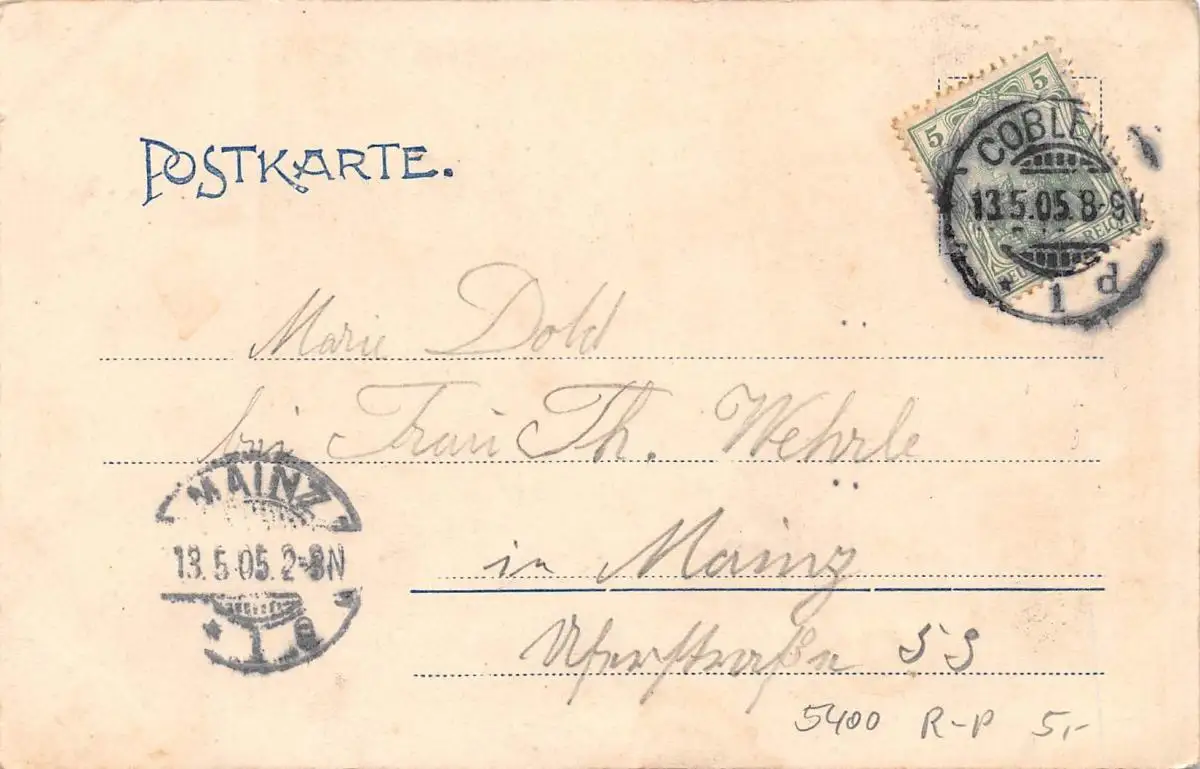 POSTKARTE.
5 5
COBLEN
13.5.05.8-9V
REICH
* 1 d
Marie Dold
bei Frau Th. Wehrle
MAINZ
13.5.05.2-3N
* 1
in Mainz
Uferstraße 55
5400 R-P 5,-